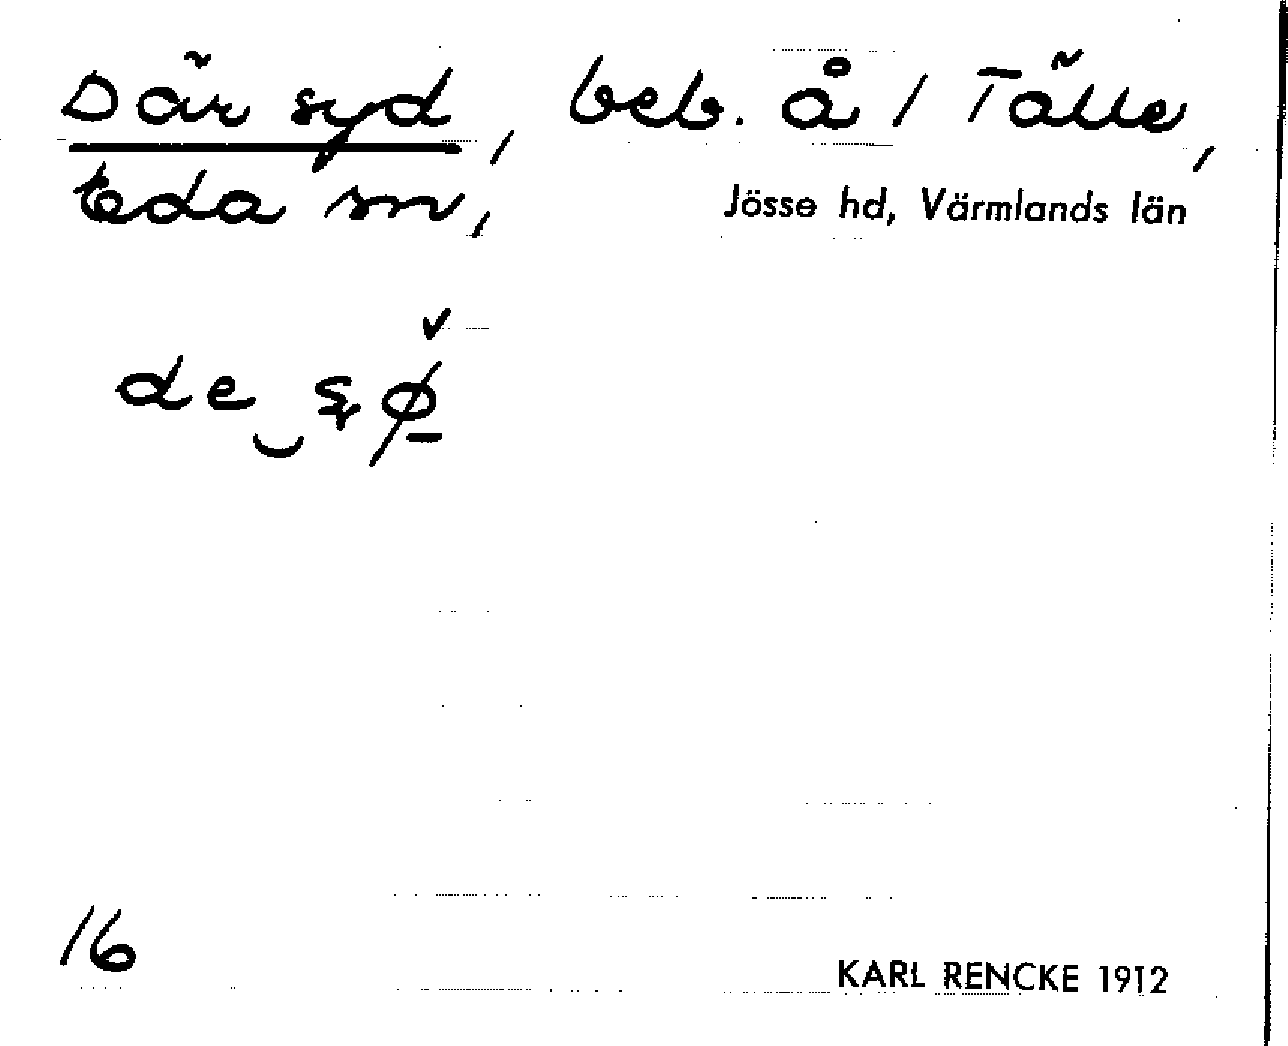 Där syd, beb. å 1 Tälle,
Eda sn, Jösse hd, Värmlands län
16
KARL RENCKE 1912